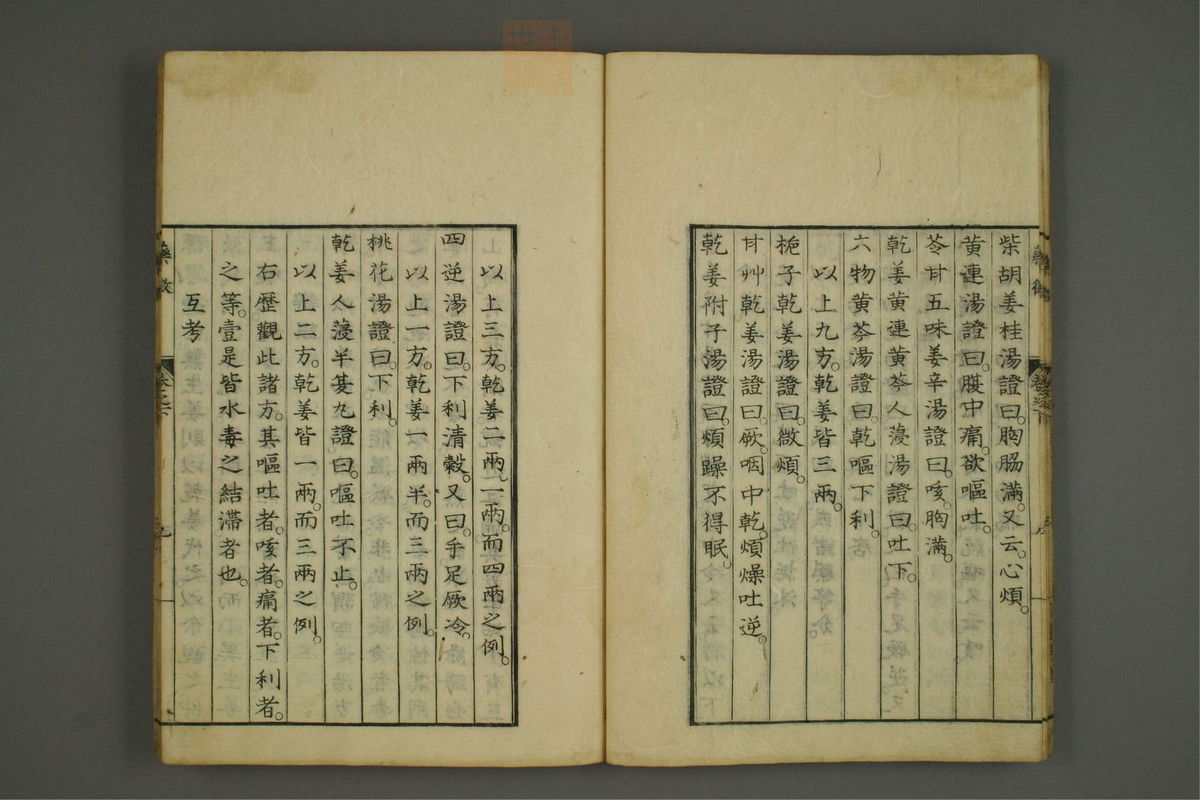 柴胡姜桂湯證曰。胸脇滿。又云。心煩。
黃連湯證曰。腹中痛。欲嘔吐。
苓甘五味姜辛湯證曰。咳。胸滿。
乾姜黃連黃芩人薓湯證曰。吐下。
六物黃芩湯證曰。乾嘔下利。
以上九方。乾姜皆三兩。
梔子乾姜湯證曰。微煩。
甘艸乾姜湯證曰。厥。咽中乾。煩燥吐逆。
乾姜附子湯證曰。煩躁不得眠。
以上三方。乾姜二兩。一兩。而四兩之例。
四逆湯證曰。下利清穀。又曰。手足厥冷。
以上一方。乾姜一兩半。而三兩之例。
桃花湯證曰。下利。
乾姜人薓半夏丸證曰。嘔吐不止。
以上二方。乾姜皆一兩。而三兩之例。
右歷觀此諸方。其嘔吐者。咳者。痛者。下利者。
之等。壹是皆水毒之結滯者也。
互考
藥徵